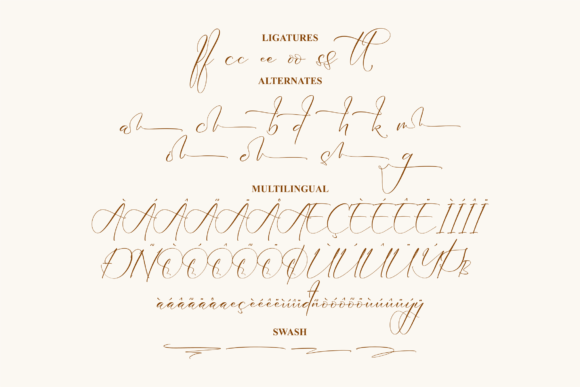 LIGATURES
ff cc ee oo ss tt
ALTERNATES
ah ch b d h k mh
ih oh sh g
MULTILINGUAL
ÀÁÂÃÄÅÆÇÈÉÊËÌÍÎÏ
ÐÑÒÓÔÕÖØÙÚÛÜÝÞß
àáâãäåæçèéêëìíîïðñòóôõöùúûüýÿ
SWASH